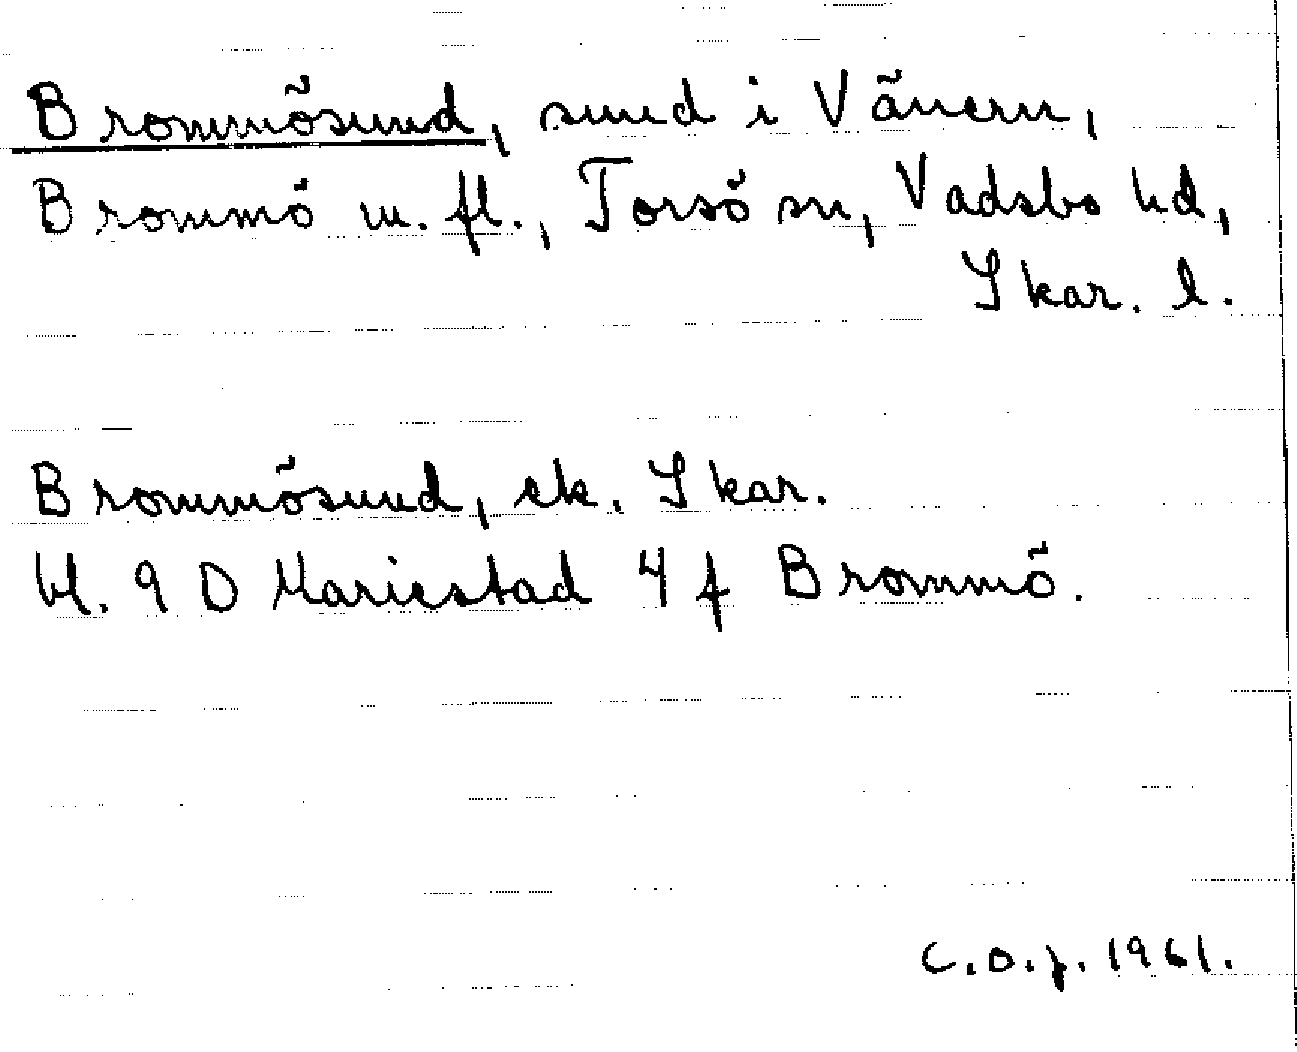 Brommösund, sund i Vänern,
Brommö m. fl., Torsö sn, Vadsbo hd,
Skar. l.
Brommösund, ek. Skar.
bl. 9 D Mariestad 4 f Brommö.
C.O.f. 1961.